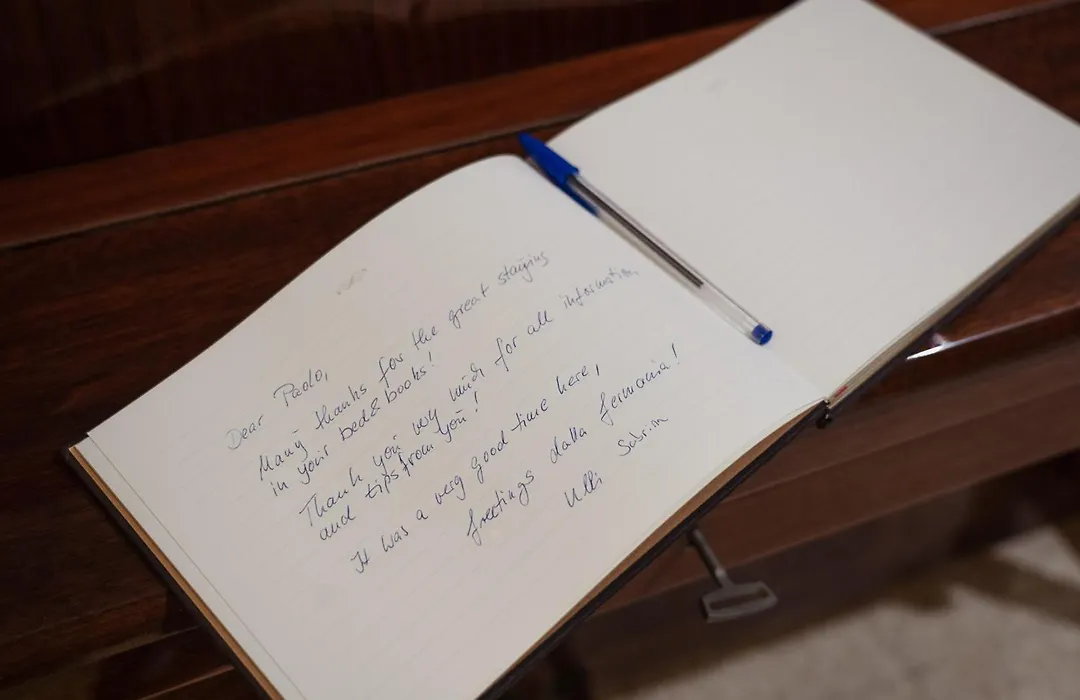 Dear Paolo,
Many thanks for the great staying
in your bed & books!
Thank you very much for all information,
and tips from you!
It was a very good time here,
greetings dalla Germania!
Ulli Sabrin